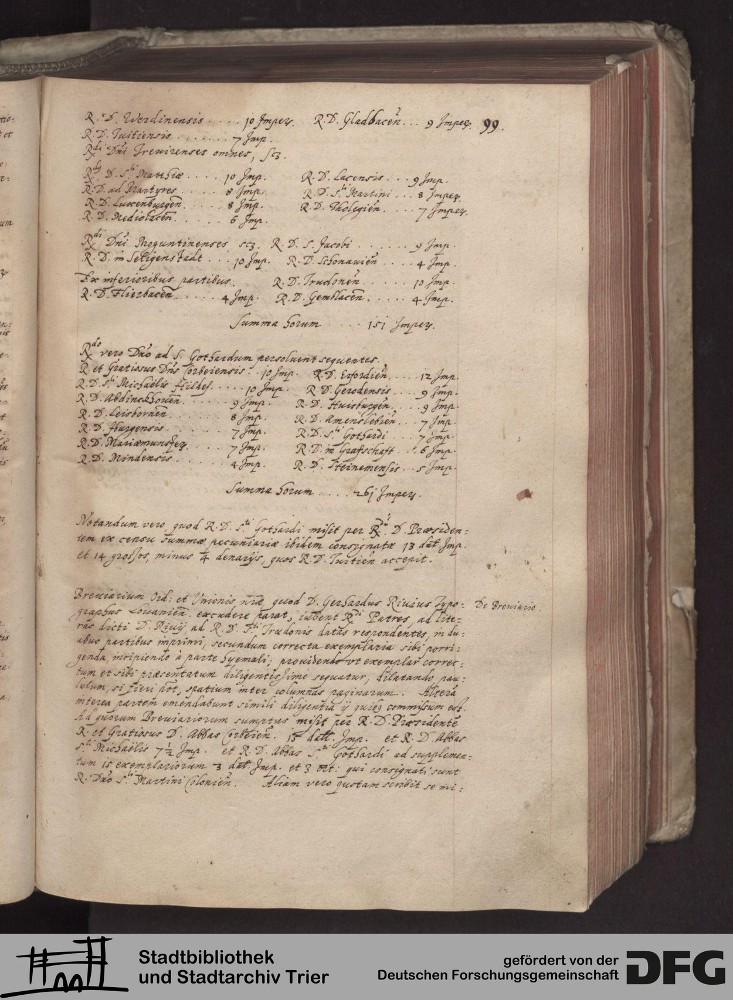 R. D. Werdinensis .... 10 Imper. R. D. Gladbacen̄ ... 9 Imper. 99.
R. D. Tuitiensis ....... 7 Imp.
R.di Dnī Trevirenses omnes, scz.
R. D. S.ti Matthiæ .... 10 Imp. R. D. Lacensis ... 9 Imp.
R. D. ad Martyres .... 8 Imp. R. D. S.ti Martini ... 8 Imper.
R. D. Luxenburgen̄ .... 8 Imp. R. D. Tholegien̄ .... 7 Imper.
R. D. Mediolacen̄ .... 6 Imp.
R.di Dnī Moguntinenses scz. R. D. S. Jacobi ....... 9 Imp.
R. D. in Seligenstadt ... 10 Imp. R. D. Schonauien̄ .... 4 Imp.
Ex inferioribus partibus. R. D. Trudonen̄ ...... 10 Imp.
R. D. Flierbacen̄ .... 4 Imp. R. D. Gemblacen̄ .... 4 Imp.
Summa horum .... 151 Imper.
R.do vero Dnō ad S. Gothardum persoluent sequentes.
R. et Gratiosus Dns Corbeiensis . 10 Imp. R. D. Erfordien̄ .... 12 Imp.
R. D. S.ti Michaëlis Hildes. .... 10 Imp. R. D. Gerodensis ... 9 Imp.
R. D. Abdinckhouen̄ ..... 9 Imp. R. D. Huisburgen̄ ... 9 Imp.
R. D. Leisbornen̄ ...... 8 Imp. R. D. Amenslebien̄ ... 7 Imp.
R. D. Iburgensis ...... 7 Imp. R. D. S.ti Gothardi ... 7 Imp.
R. D. Mariæmunster ..... 7 Imp. R. D. in Grafschaft ... 6 Imp.
R. D. Mindensis ....... 4 Imp. R. D. Heinemensis .. 5 Imp.
Summa horum ..... Imper.
Notandum vero quod R. D. S.ti Gothardi misit per R. D. Præsiden-
tem ex censu summæ pecuniariæ ibidem consignatæ 13 dal. Imp.
et 14 grossos, minus 4 denarijs, quos R. D. Tuitien̄ accepit.
Breviarium Ord: et Unionis nr̄æ quod D. Gerhardus Riuius Typo- De Breuiario
graphus Louanien̄. excudere parat, iubent R.di Patres, ad lite-
ras dicti D. Riuij ad R. D. S.ti Trudonis datas respondentes, in du-
abus partibus imprimi, secundum correcta exemplaria sibi porri-
genda, incipiendo à parte hyemali; prouidendo ut exemplar correc-
tum et sibi præsentatum diligentissime sequatur, dilatando pau-
lulum, si fieri pōt, spatium inter columnas paginarum. Alteram
interea partem emendabunt simili diligentia ij quibus commissum est.
Ad quorum Breuiariorum sumptus misit per R. D. Præsidente
R. et Gratiosus D. Abbas Corbeien̄. 15 dall. Imp. et R. D. Abbas
S.ti Michaëlis 7 ½ Imp. et R. D. Abbas S.ti Gothardi ad supplemen-
tum exemplariorum 3 dal. Imp. et 3 ort: qui consignati sunt
R. Dnō S.ti Martini Colonien̄. Aliam vero quotam scribit se mi-
Stadtbibliothek
und Stadtarchiv Trier
gefördert von der
Deutschen Forschungsgemeinschaft
DFG